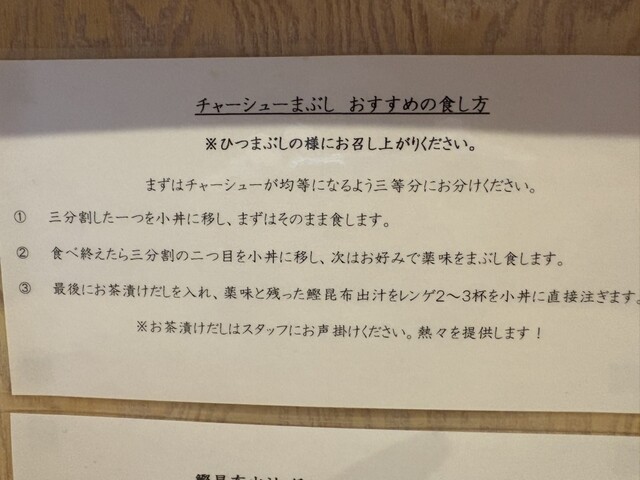 チャーシューまぶし おすすめの食し方
※ひつまぶしの様にお召し上がりください。
まずはチャーシューが均等になるよう三等分にお分けください。
① 三分割した一つを小丼に移し、まずはそのまま食します。
② 食べ終えたら三分割の二つ目を小丼に移し、次はお好みで薬味をまぶし食します。
③ 最後にお茶漬けだしを入れ、薬味と残った鰹昆布出汁をレンゲ2～3杯を小丼に直接注ぎます。
※お茶漬けだしはスタッフにお声掛けください。熱々を提供します！